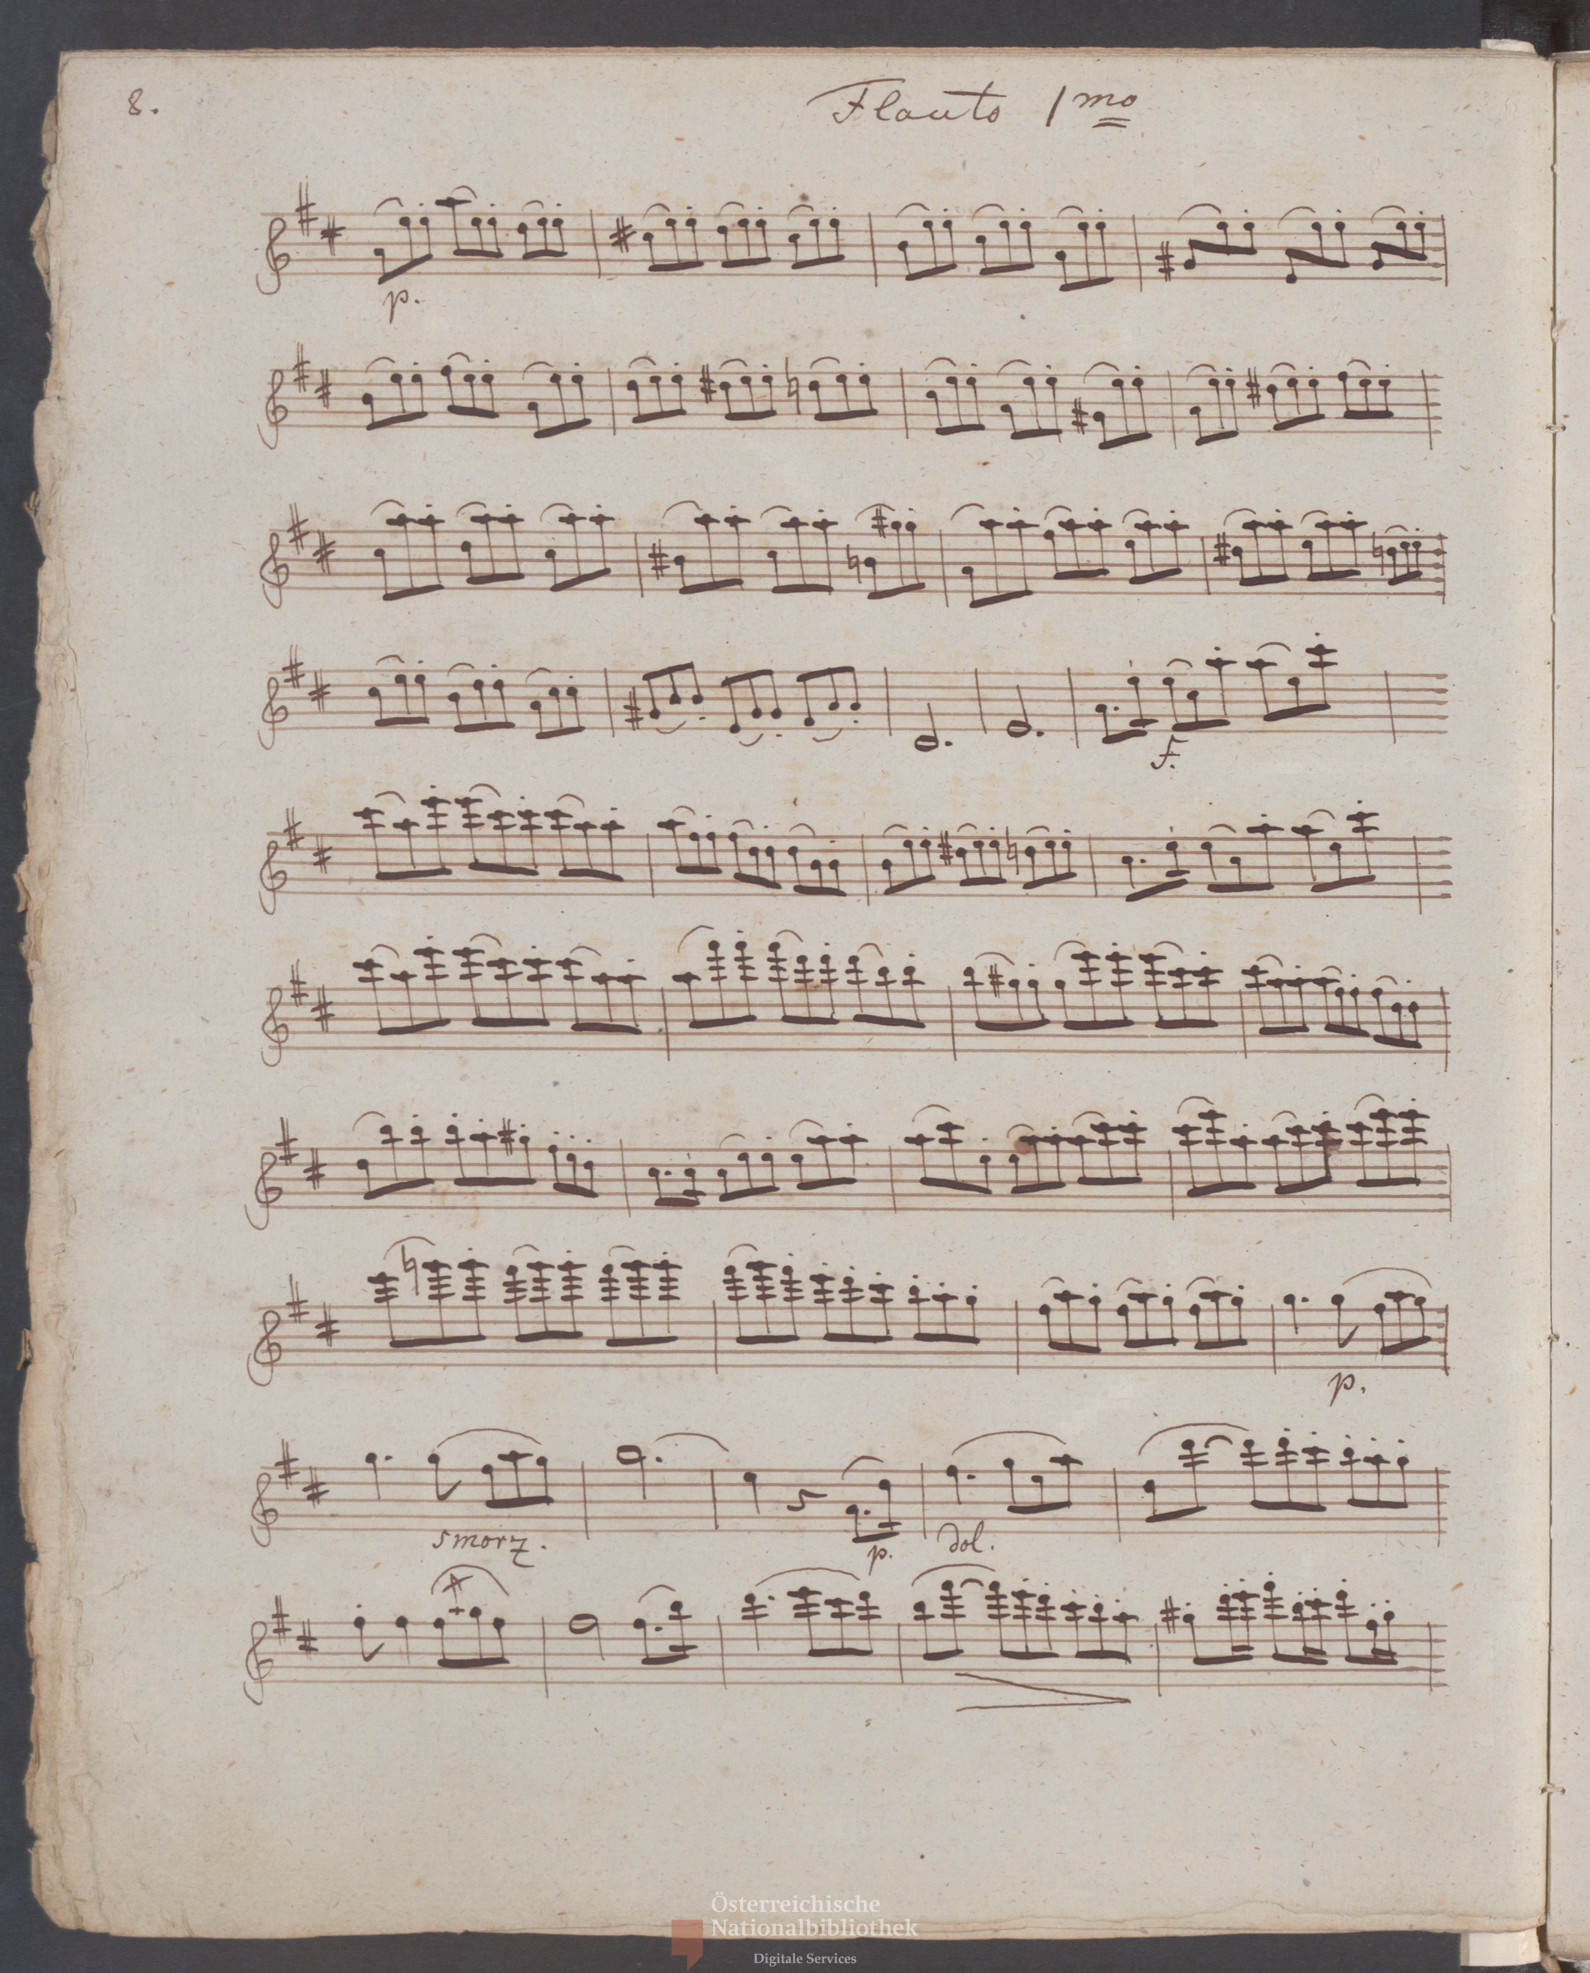 8.
Flauto 1mo
p.
f.
p.
smorz.
p. dol.
Österreichische
Nationalbibliothek
Digitale Services